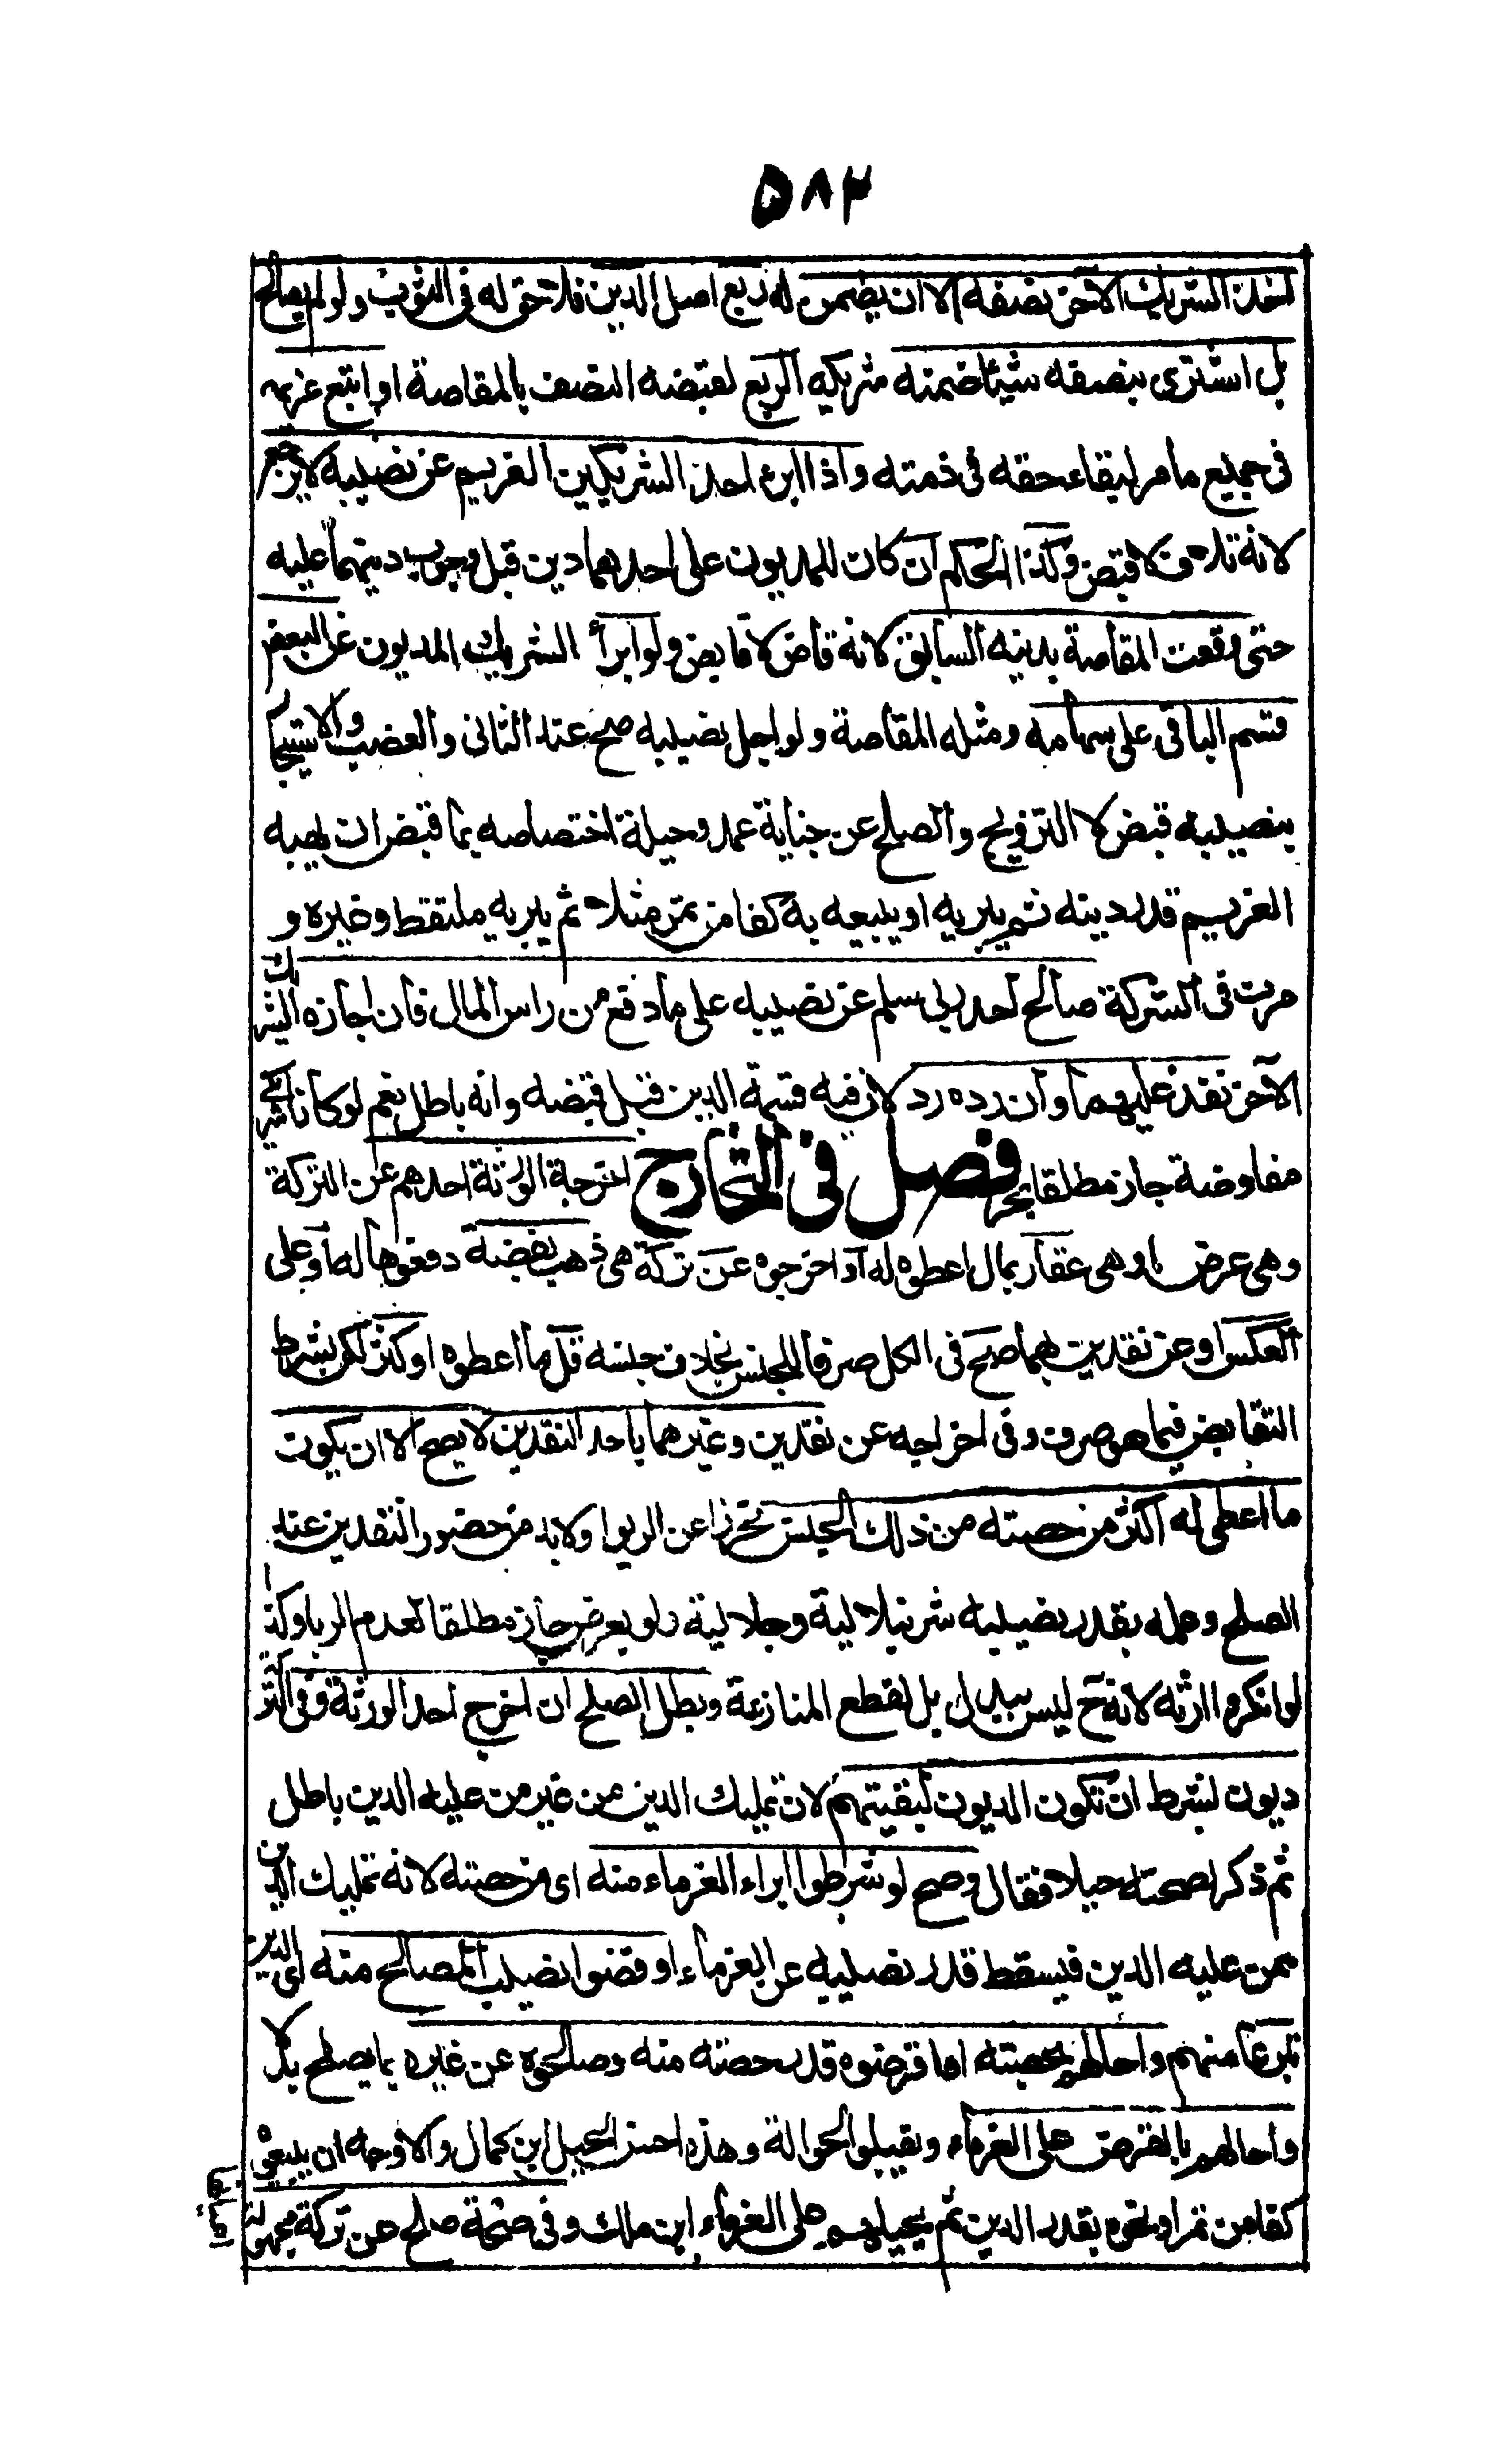 ۵۸۲
اخذ الشريك الآخر نصفه الا ان يضمن له ربع اصل الدين فلا حق له فى الثوب ولو لم يصالح
بل اشترى بنصفه شيئا ضمنه شريكه الربع لقبضه النصف بالمقاصة او اتبع غريمه
فى جميع ما مر لبقاء حقه فى ذمته واذا ابرء احد الشريكين الغريم عن نصيبه لا يرجع
لانه تلاف لا قبض وكذا الحكم ان كان للمديون على احدهما دين قبل وجوب دينهما عليه
حتى وقعت المقاصة بدينه السابق لانه قاض لا قابض ولو ابرأ الشريك المديون عن البعض
قسم الباقى على سهامه ومثله المقاصة ولو اجل نصيبه صح عند الثانى والغصب والاستيجار
بنصيبه قبض لا التزويج والصلح عن جناية عمد وحيلة اختصاصه بما قبض ان يهبه
الغريم قدر دينه ثم يبريه او يبيعه به كفا من تمر مثلا ثم يبريه ملتقط وغيره و
مرت فى الشركة صالح احد ربى سلم عن نصيبه على ما دفع من راس المال فان اجازه الشريك
الآخر نفذ عليهما وان رده رد لان فيه قسمة الدين قبل قبضه وانه باطل نعم لو كانا شريكى
مفاوضة جاز مطلقا بحر فصل فى التخارج اخرجة الورثة احدهم عن التركة
وهى عرض او هى عقار بمال اعطوه له او اخرجوه عن تركة هى ذهب بفضة دفعوها له او على
العكس او عن نقدين بهما صح فى الكل صرفا للجنس بخلاف جنسه قل ما اعطوه او كثر لكن بشرط
التقابض فيما هو صرف وفى اخراجه عن نقدين وغيرهما باحد النقدين لا يصح الا ان يكون
ما اعطى له اكثر من حصته من ذلك الجنس تحرزا عن الربوا ولابد من حضور النقدين عند
الصلح وعلمه بقدر نصيبه شرنبلالية وجلالية ولو بعرض جاز مطلقا لعدم الربا وكذا
لو انكروا ارثه لانه ح ليس ببدل بل لقطع المنازعة وبطل الصلح ان اخرج احد الورثة وفى التركة
ديون بشرط ان تكون الديون لبقيتهم لان تمليك الدين من غير من عليه الدين باطل
ثم ذكر لصحته حيلا فقال وصح لو شرطوا ابراء الغرماء منه اى من حصته لانه تمليك الدين
ممن عليه الدين فيسقط قدر نصيبه عن الغرماء او قضوا نصيب المصالح منه اى الدين
تبرعا منهم واحالهم بحصته او اقرضوه قدر حصته منه وصالحوه عن غيره بما يصلح بدلا
واحالهم بالقرض على الغرماء ويقبلوا الحوالة وهذه احسن الحيل ابن كمال والاوجه ان يبيعوه
كفا من تمر او نحوه بقدر الدين ثم يحيلهم على الغرماء ابن ملك وفى صحة صلح عن تركة مجهولة